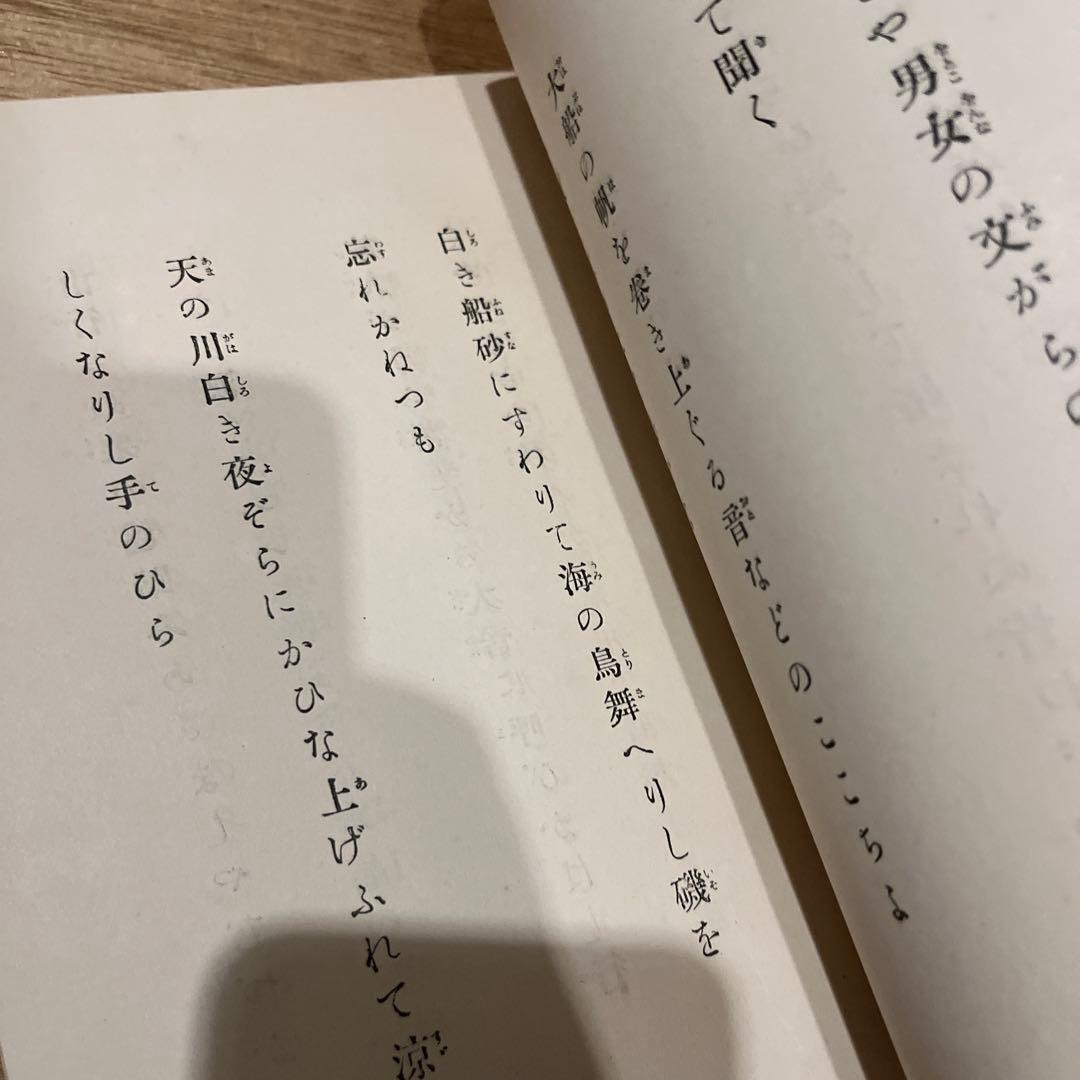 や男女の文がらの
て聞く
大船の帆を巻き上ぐる音などのここちよ
白き船砂にすわりて海の鳥舞へりし磯を
忘れかねつも
天の川白き夜ぞらにかひな上げふれて涼
しくなりし手のひら